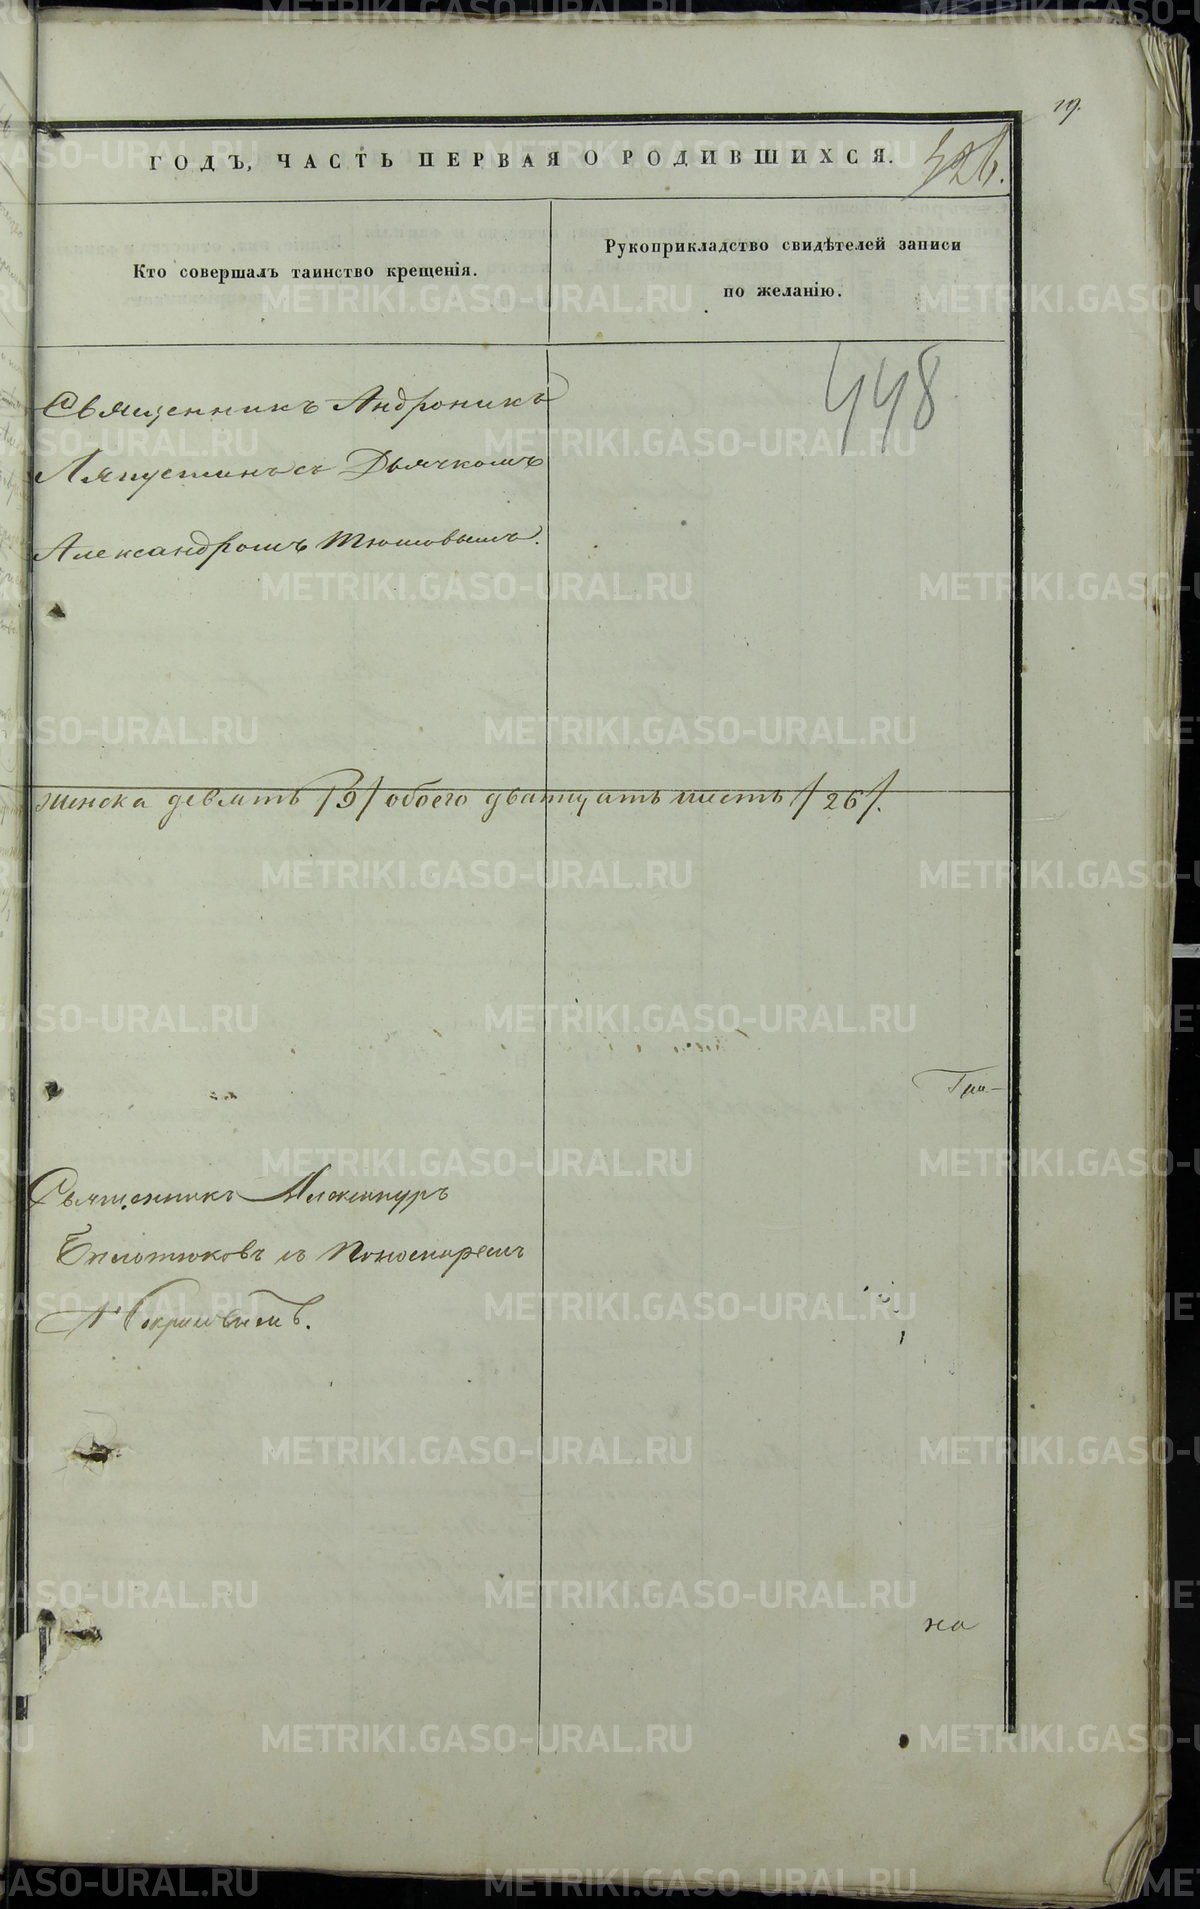 19.
ГОДЪ, ЧАСТЬ ПЕРВАЯ О РОДИВШИХСЯ.
426.
Кто совершалъ таинство крещенія.
Рукоприкладство свидѣтелей записи
по желанію.
448
Священникъ Андроникъ
Ляпустинъ съ Дьячкомъ
Александромъ
женска девять /9/ обоего дватцать шесть /26/.
Священникъ
съ Пономаремъ
на
METRIKI.GASO-URAL.RU